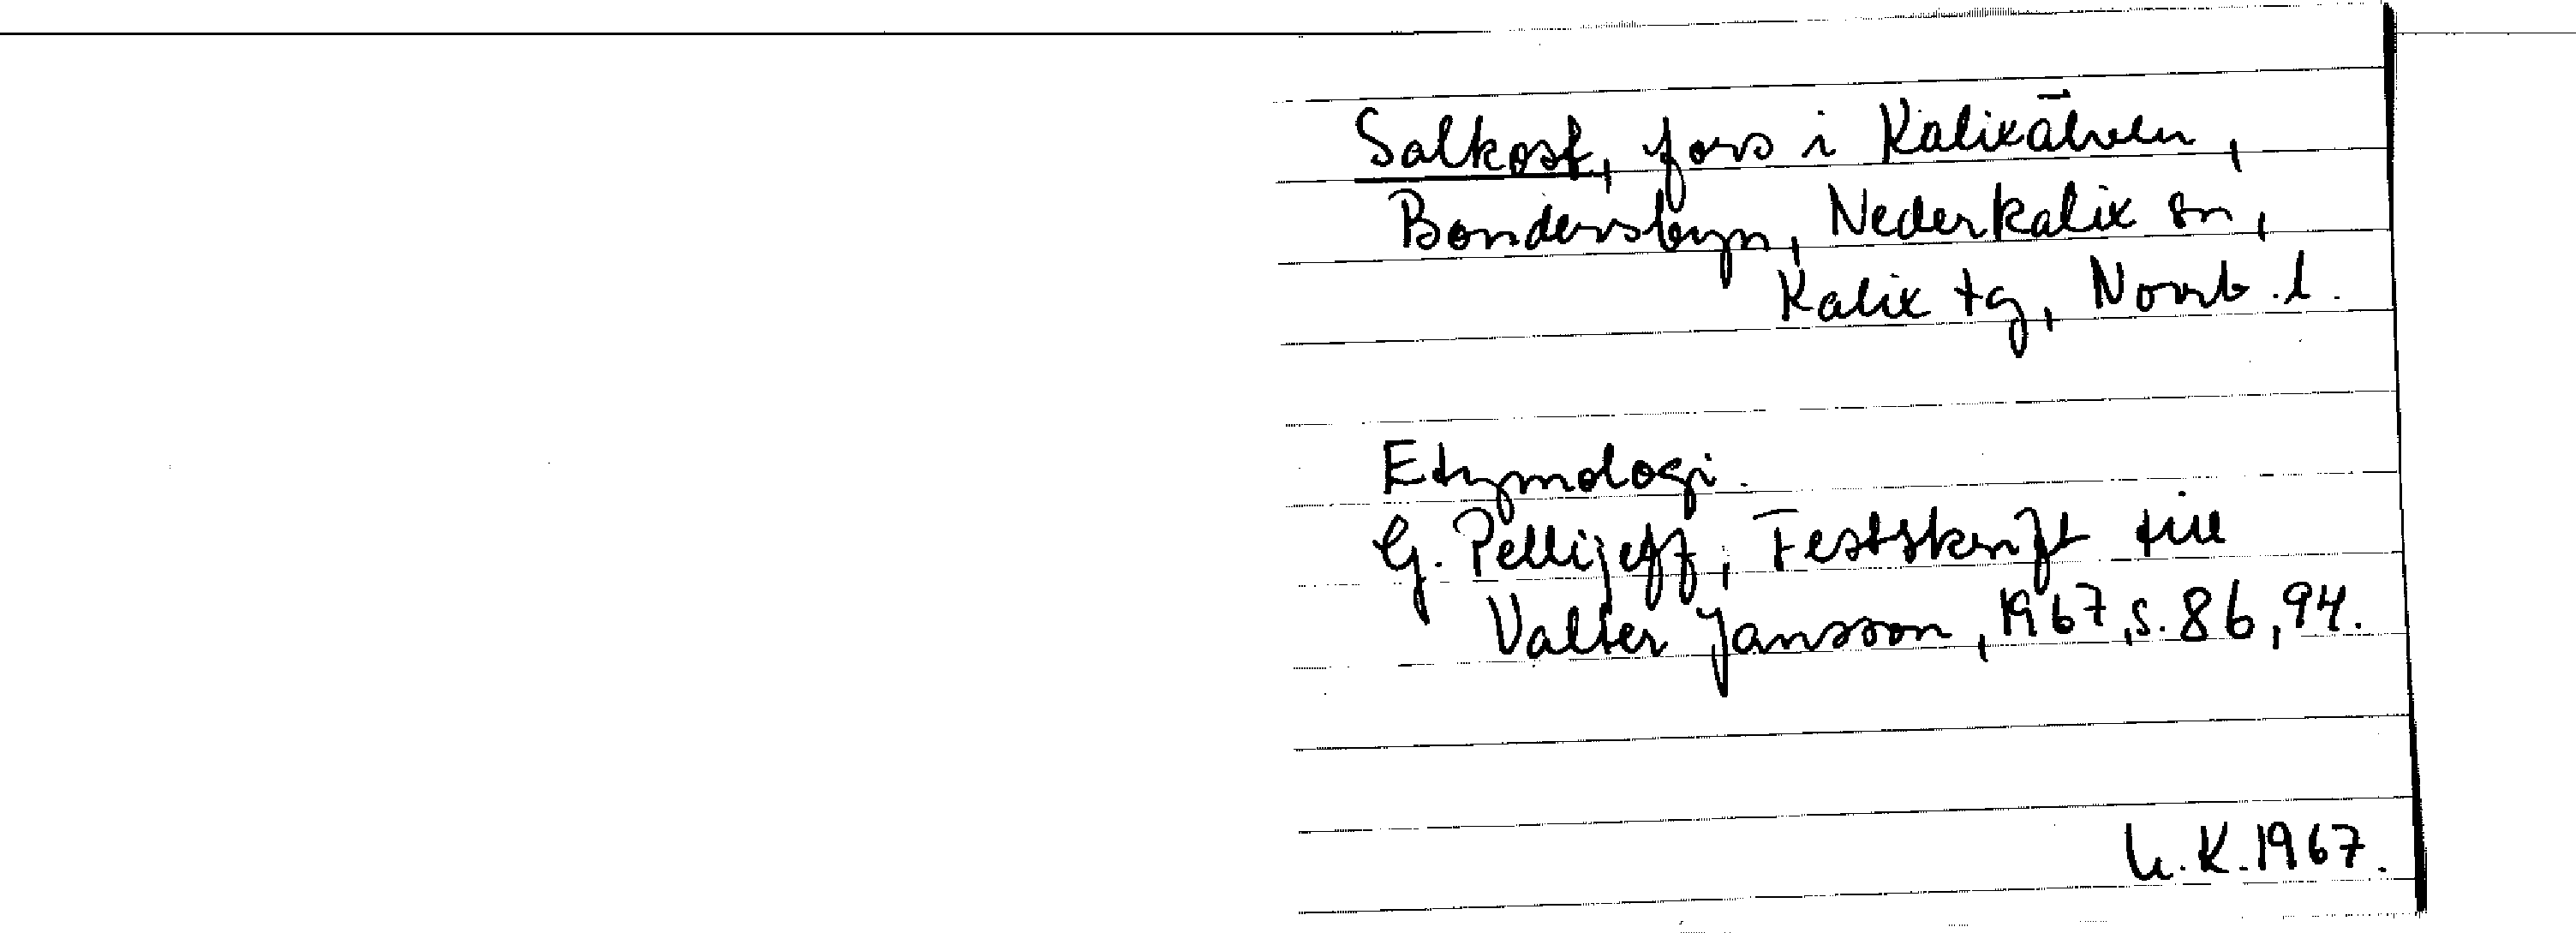 Salkost, fors i Kalixälven,
Bondersbyn, Nederkalix sn,
Kalix tg, Norrb. l.
Etymologi.
G. Pellijeff, Festskrift till
Valter Jansson, 1967, s. 86, 94.
U.K. 1967.